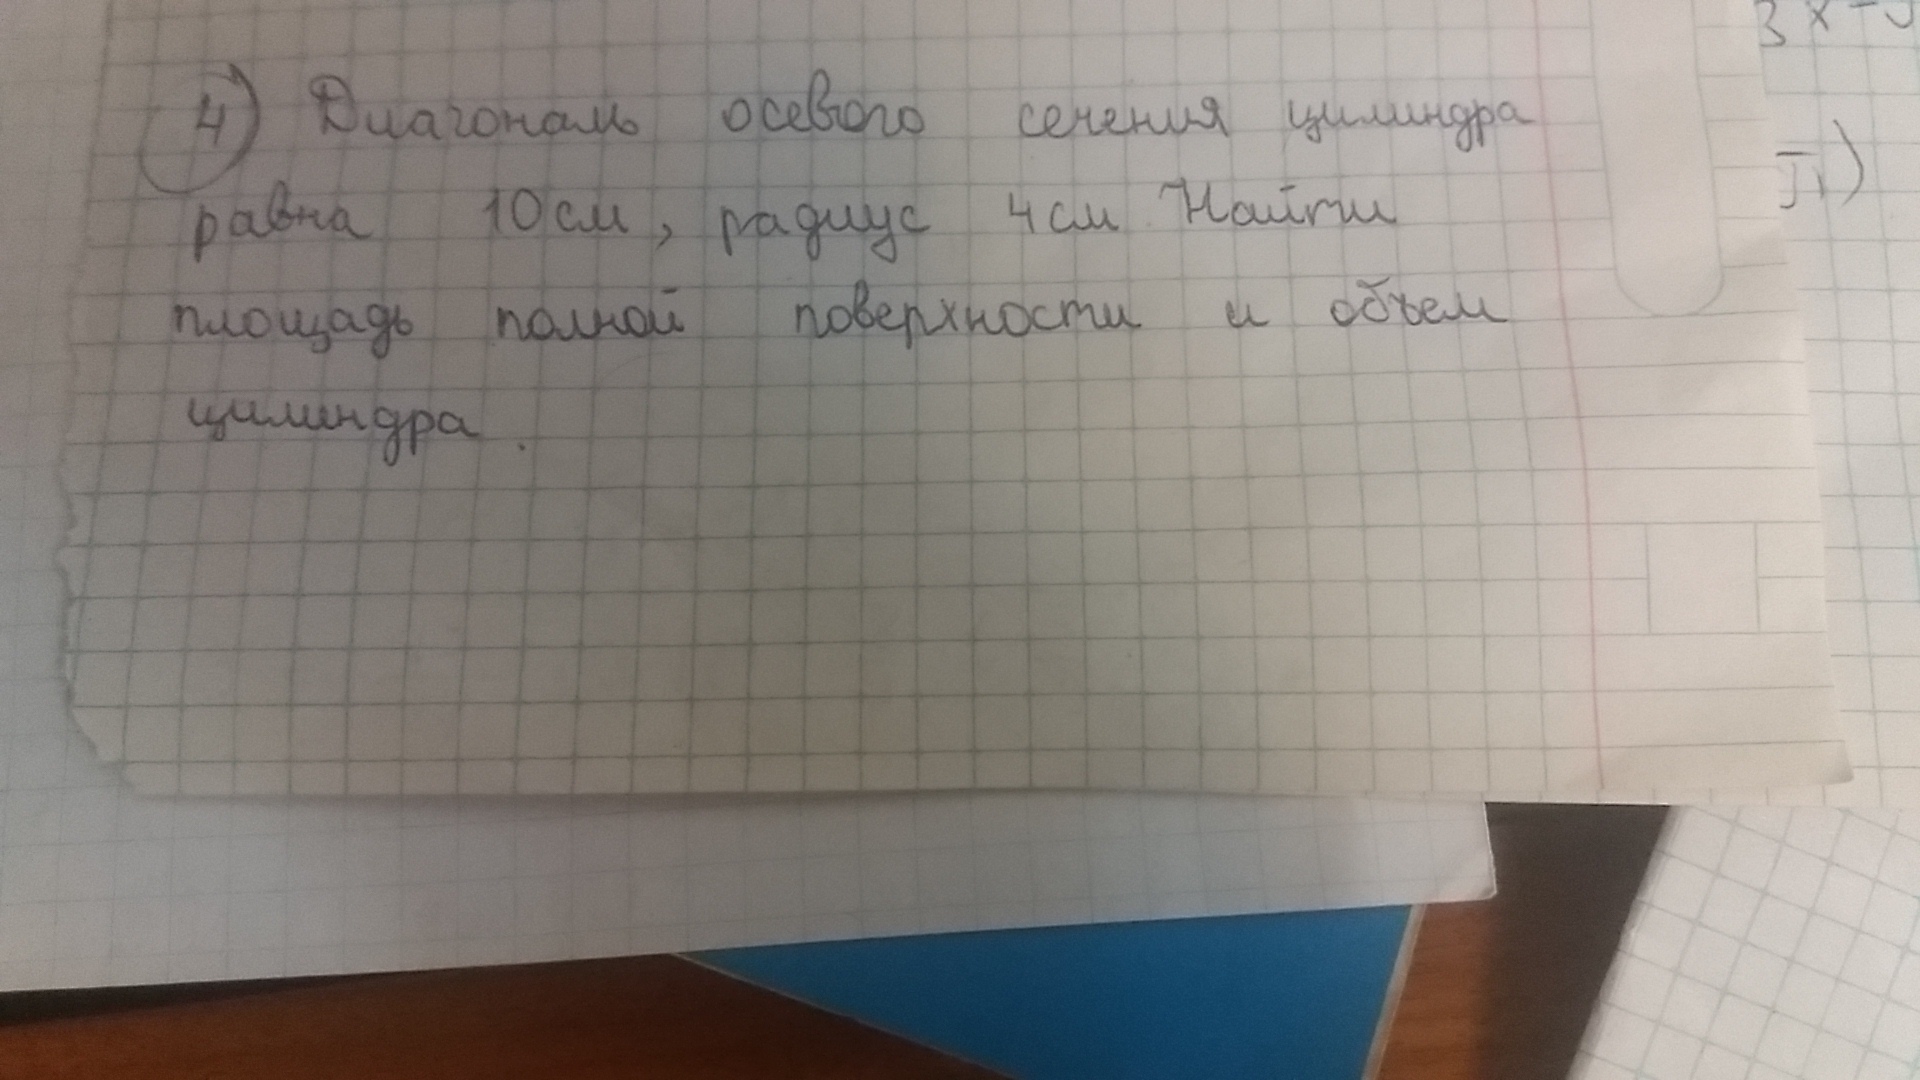 4) Диагональ осевого сечения цилиндра
равна 10 см, радиус 4 см. Найти
площадь полной поверхности и объем
цилиндра.
3x-
π)